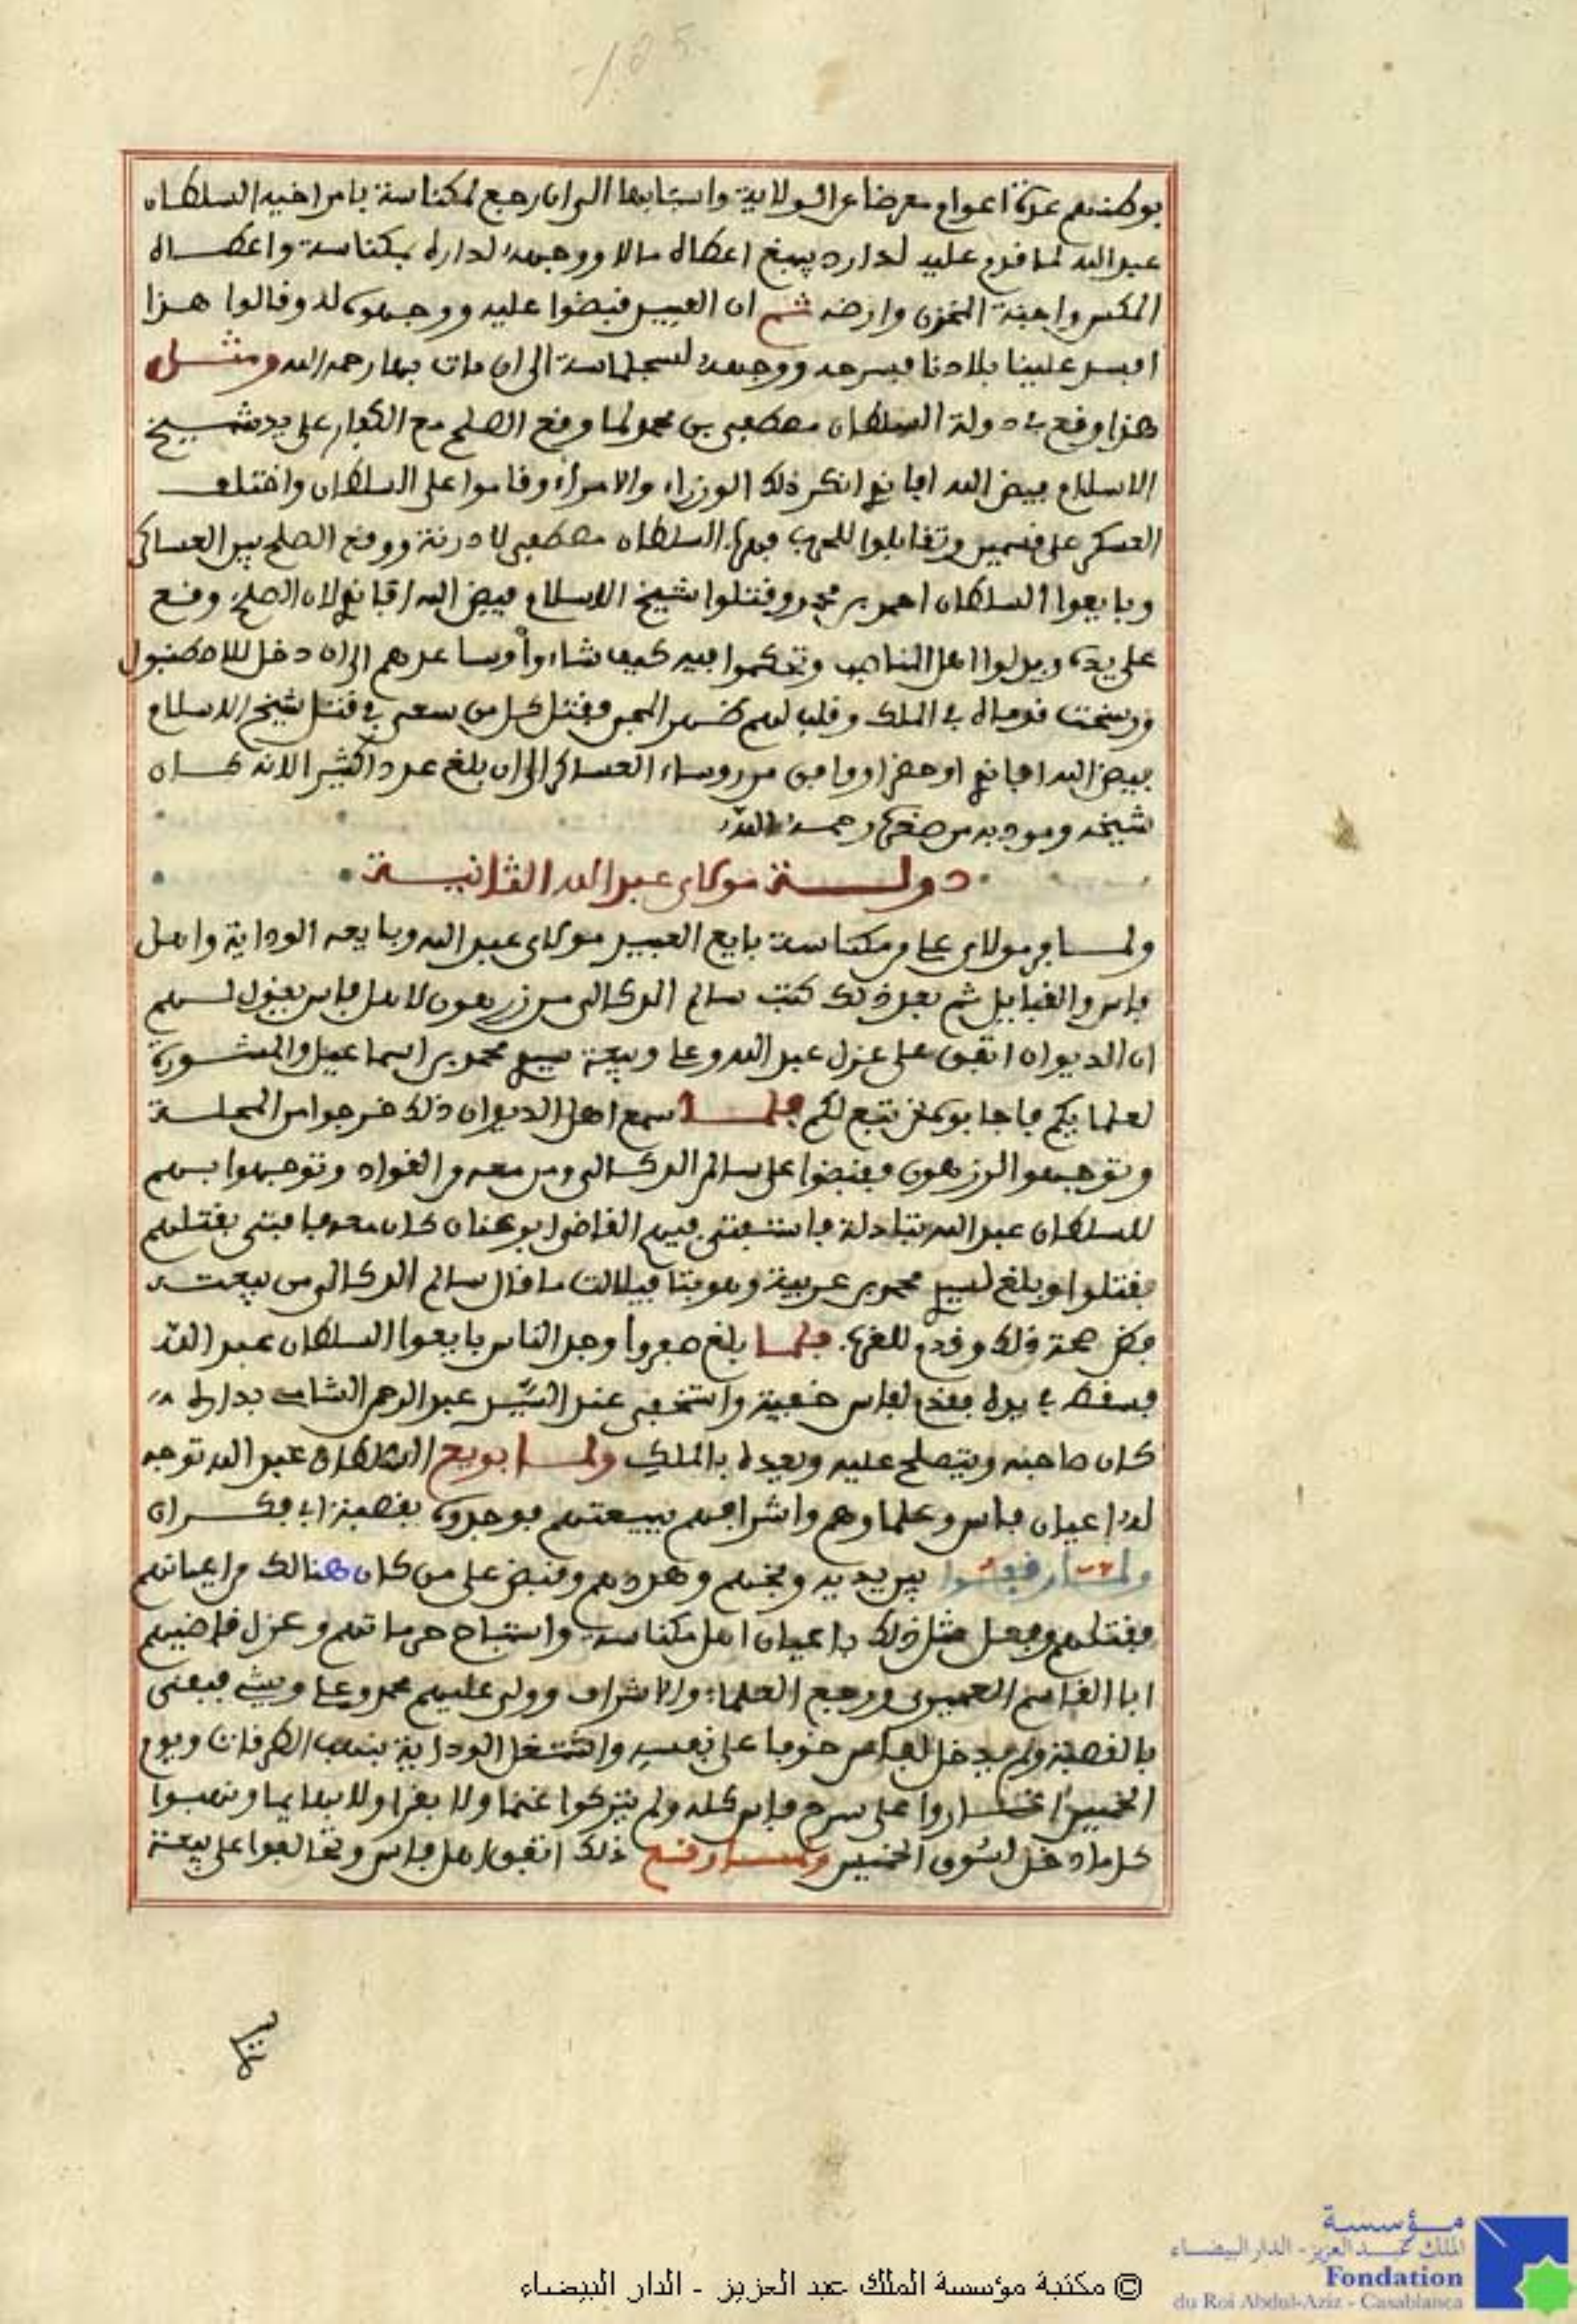 125
بوطنهم عدة اعوام معرضا عن الولاية واسبابها الى ان رجع لمكناسة بامر اخيه السلطان
عبد الله لما قدم عليه لداره اعطاه مالا ووجهه لداره بمكناسة واعطاه
المكس واجنة المخزن وارضه ثم ان العبيد قبضوا عليه ووجهوه له وقالوا هذا
افسد علينا بلادنا فسرحه ووجهه لسجلماسة الى ان مات بها رحمه الله ومثل
هذا وقع في دولة السلطان مصطفى بن محمد لما وقع الصلح مع الكفار على يد شيخ
الاسلام فيض الله افانغ انكر ذلك الوزراء والامراء وقاموا على السلطان واختلف
العسكر على قسمين وتقابلوا للحرب فهرب السلطان مصطفى لادرنة ووقع الصلح بين العساكر
وبايعوا السلطان احمد بن محمد وقتلوا شيخ الاسلام فيض الله افانغ لان الصلح وقع
على يده وبدلوا اهل المناصب وتحكموا فيه كيف شاءوا وساعدهم الى ان دخل للاصطنبول
ورسخت قدماه في الملك وقلب لهم ظهر المجن فقتل كل من سعى في قتل شيخ الاسلام
فيض الله افانغ او حضر او وافق من روساء العساكر الى ان بلغ عددا كثيرا لانه كان
شيخه ومودبه من صغره رحمه الله
دولة مولاي عبد الله الثانية
ولما فر مولاي علي من مكناسة بايع العبيد مولاي عبد الله وبايعه الوداية واهل
فاس والقبايل ثم بعد ذلك كتب سالم الدكالي من زرهون لاهل فاس يقول لهم
ان الديوان اتفق على عزل عبد الله وعلى بيعة سيدي محمد بن اسماعيل والمشورة
لعلمايكم فاجابوه نحن تبع لكم فلما سمع اهل الديوان ذلك خرجوا من المحلة
وتوجهوا لزرهون فقبضوا على سالم الدكالي ومن معه من القواد وتوجهوا بهم
للسلطان عبد الله بتادلة فاستفتى فيهم القاضي ابو عنان كان معه فافتى بقتلهم
فقتلوا وبلغ لسيدي محمد بن عربية وهو بتافيلالت ما قال سالم الدكالي من بيعته
فظن صحة ذلك وقدم للغرب فلما بلغ صفروا وجد الناس بايعوا السلطان عبد الله
فسقط في يده فقدم لفاس خفية واختفى عند السيد عبد الرحمن الشامي بداره
كان صاحبه ويتصلح عليه ويعده بالملك ولما بويع السلطان عبد الله توجه
له اعيان فاس وعلماوهم واشرافهم ببيعتهم فوجدوه بقصبة ابي فكران
ولما وقفوا بين يديه وبخهم وهددهم وقبض على من كان هنالك من اعيانهم
فقتلهم وفعل مثل ذلك باعيان اهل مكناسة واستباح حرماتهم وعزل قاضيهم
ابا القاسم العميري ورجع العلماء والاشراف وولى عليهم محمد وعلي ويشي فبقى
بالقصبة ولم يدخل لفاس خوفا على نفسه واشتغل الوداية بنهب الطرقات ويوم
الخميس اغاروا على سرح فاس كله ولم يتركوا غنما ولا بقرا ولا بهايما ونهبوا
كل ما دخل لسوق الخميس ولما وقع ذلك اتفق اهل فاس وتحالفوا على بيعة
© مكتبة مؤسسة الملك عبد العزيز - الدار البيضاء
مؤسسة
الملك عبد العزيز - الدار البيضاء
Fondation
du Roi Abdul-Aziz - Casablanca